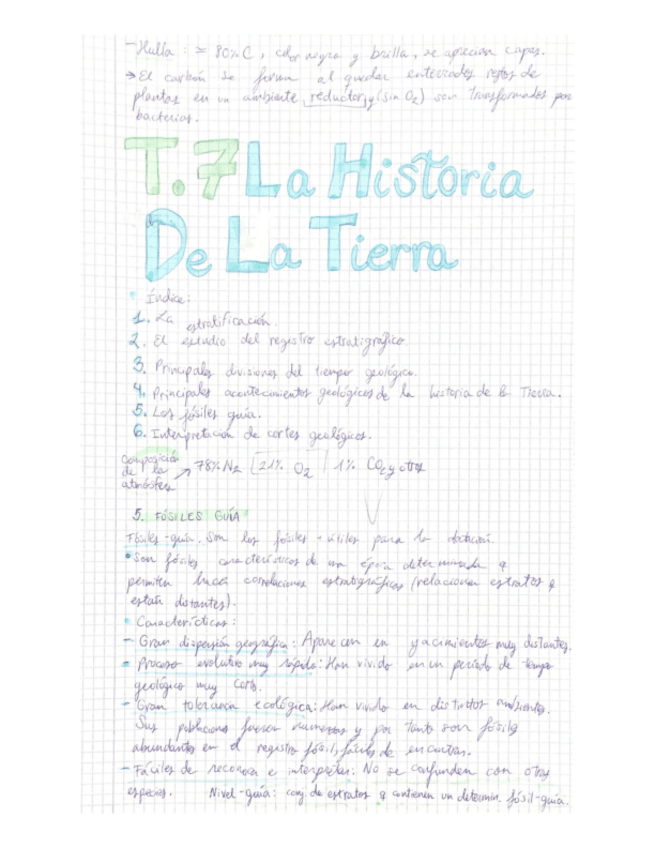 - Hulla : ≃ 80% C, color negro y brilla, se aprecian capas.
→ El carbón se forma al quedar enterrados restos de
plantas en un ambiente reductor y (sin O2) son transformados por
bacterias.
T.7 La Historia
De La Tierra
• Índice:
1. La estratificación.
2. El estudio del registro estratigráfico.
3. Principales divisiones del tiempo geológico.
4. Principales acontecimientos geológicos de la historia de la Tierra.
5. Los fósiles guía.
6. Interpretación de cortes geológicos.
Composición
de la → 78% N2 [21% O2] 1% CO2 y otros
atmósfera
5. FÓSILES GUÍA
Fósiles-guía. Son los fósiles + útiles para la datación.
• Son fósiles característicos de una época determinada q
permiten hacer correlaciones estratigráficas (relacionar estratos q
están distantes).
• Características :
- Gran dispersión geográfica : Aparecen en yacimientos muy distantes.
- Proceso evolutivo muy rápido : Han vivido en un período de tiempo
geológico muy corto.
- Gran tolerancia ecológica : Han vivido en distintos ambientes.
Sus poblaciones fueron numerosas y por tanto son fósiles
abundantes en el registro fósil, fáciles de encontrar.
- Fáciles de reconocer e interpretar : No se confunden con otras
especies. Nivel-guía : conj. de estratos q contienen un determin. fósil-guía.